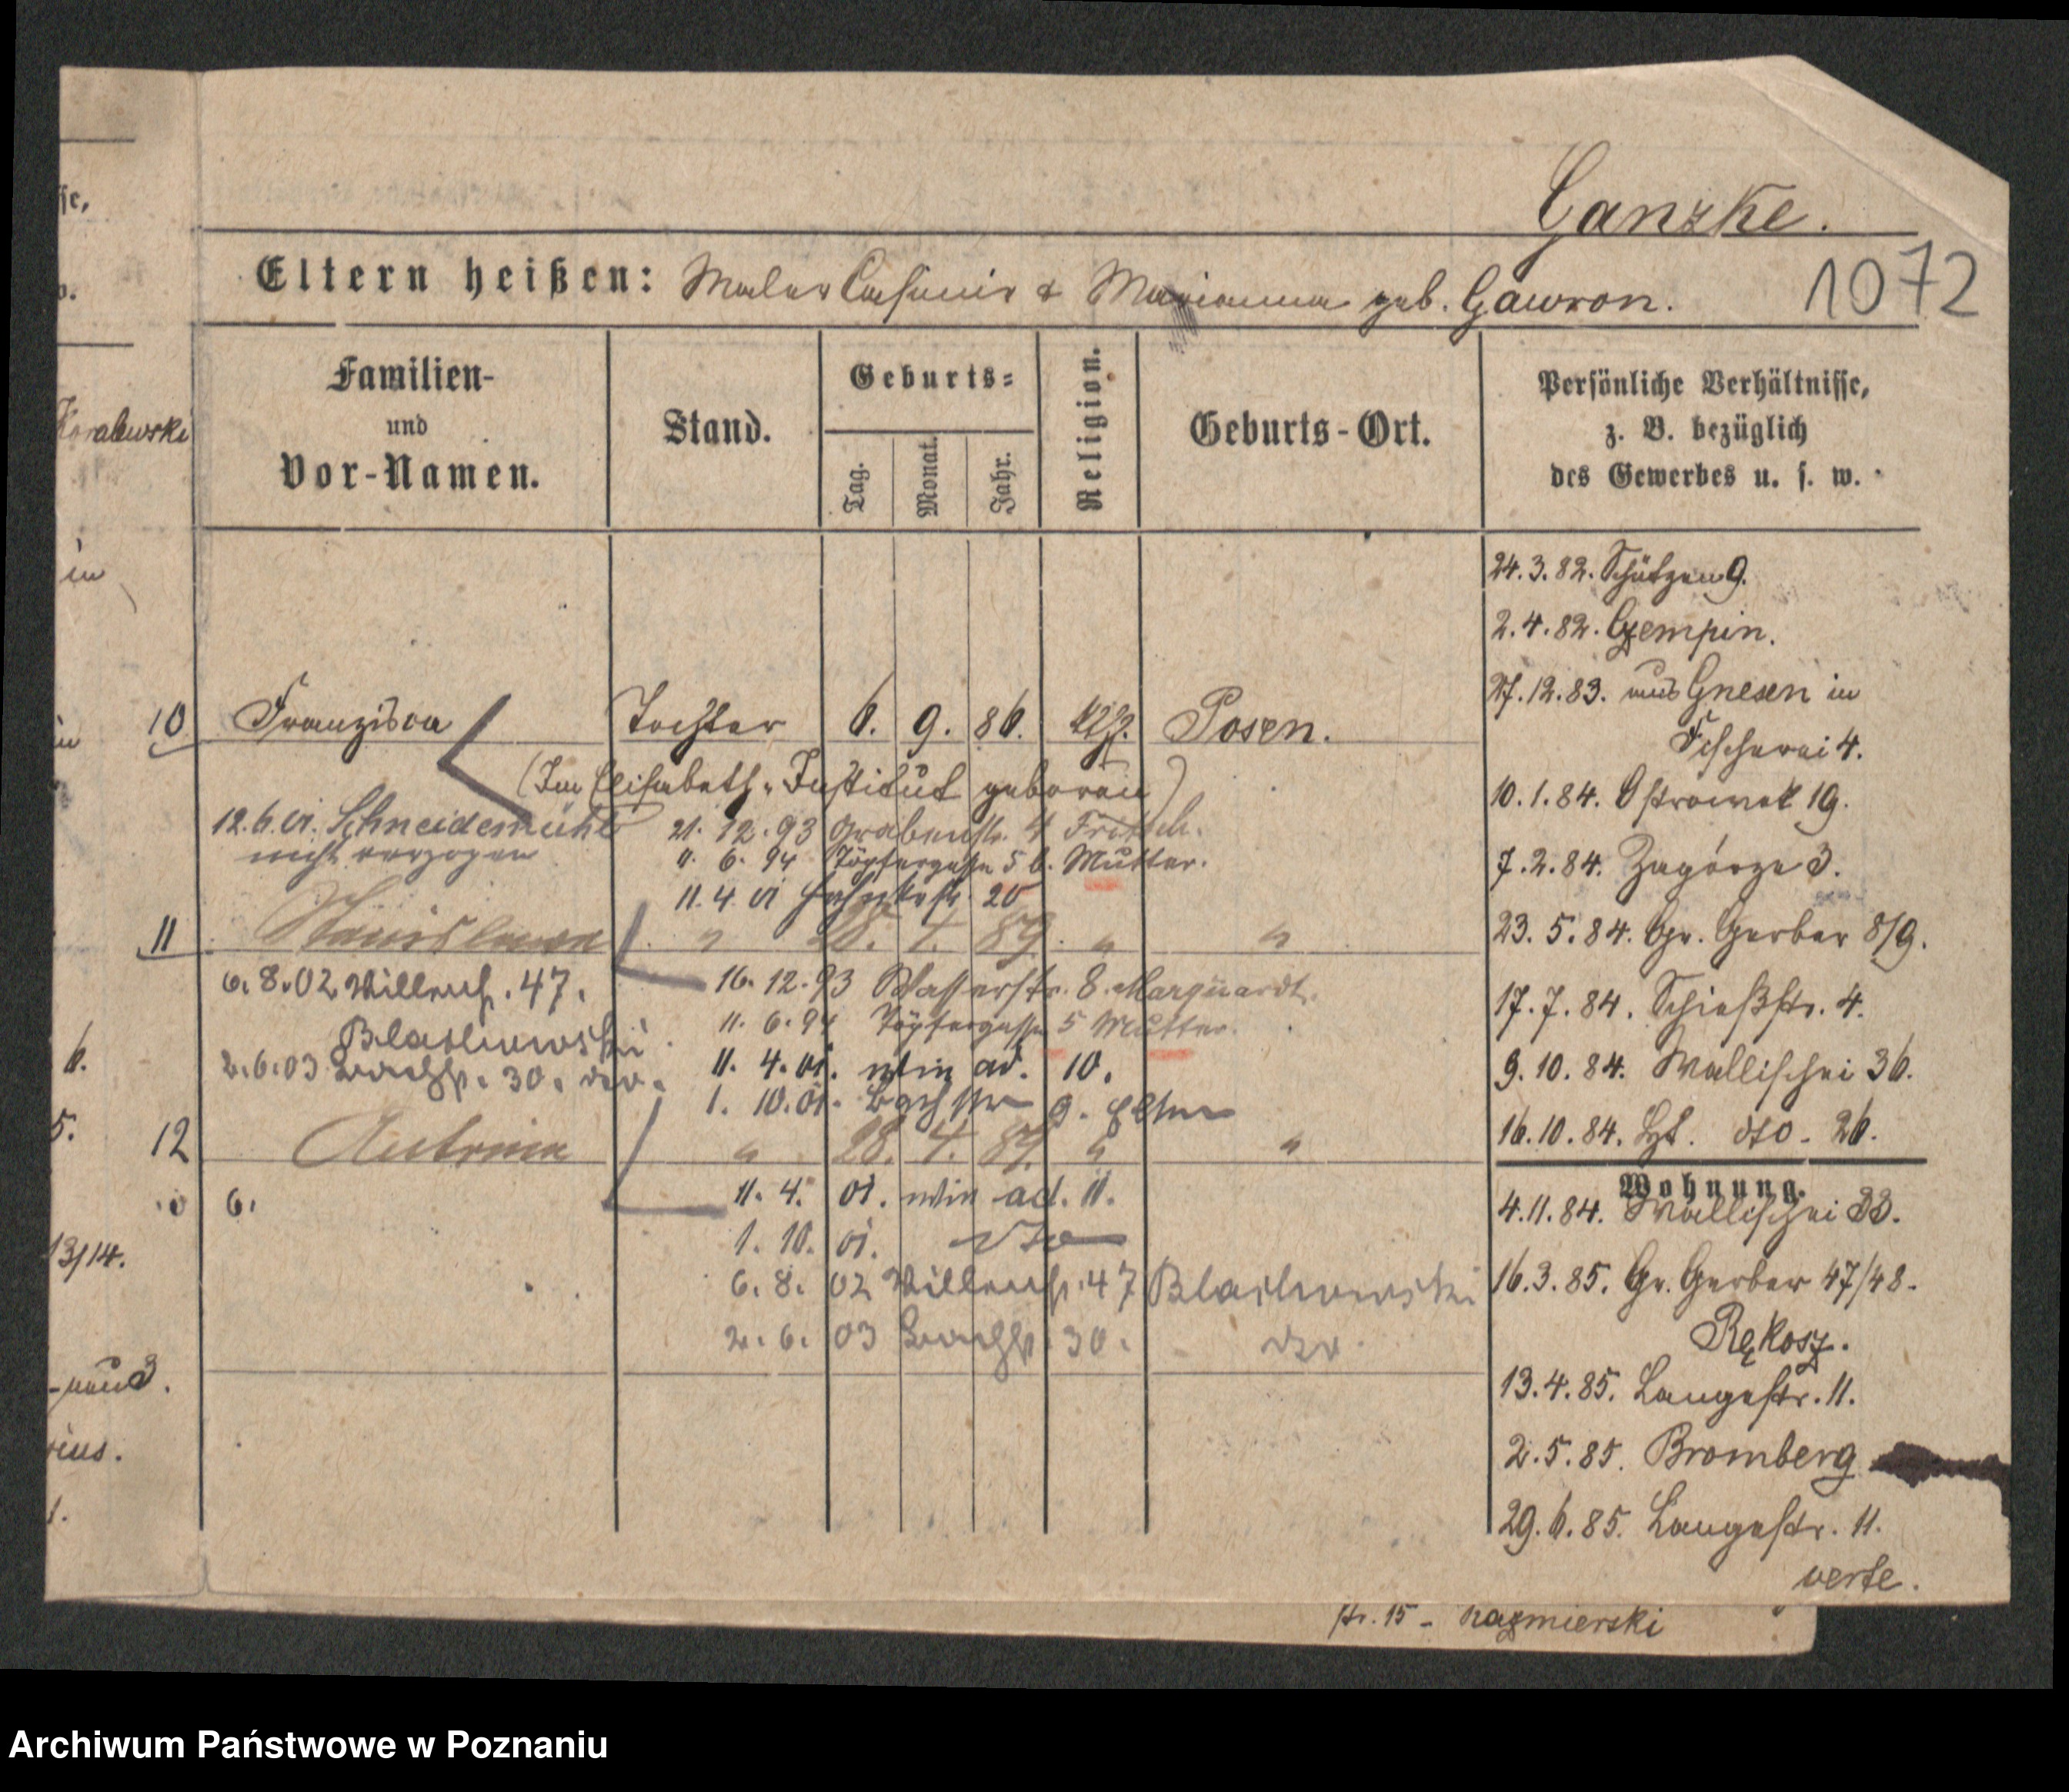 Ganzke.
1072
Eltern heißen: Maler Casimir & Marianna geb. Gawron.
Familien-
und
Vor-Namen.
Stand.
Geburts-
Tag.
Monat.
Jahr.
Religion.
Geburts-Ort.
Persönliche Verhältnisse,
z. B. bezüglich
des Gewerbes u. s. w.
se,
in
24.3.82. Schützen 9.
2.4.82. Czempin.
27.12.83. aus Gnesen in
Fischerei 4.
10 Franziska Tochter 6. 9. 86. kth. Posen.
(Im Elisabeth-Institut geboren)
10.1.84. Ostrowek 19.
12.6.01. Schneidemühl
nicht verzogen
21.12.93 Grabenstr. 4 Fritsch.
11.6.94 Töpfergasse 5 b. Mutter.
11.4.01 20
7.2.84. Zagórze 3.
11 Stanislawa " 28. 4. 89. " "
23.5.84. Gr. Gerber 8/9.
6.8.02 47.
2.6.03 30.
16.12.93 Wasserstr. 8. Marquardt.
11.6.94 Töpfergasse 5 Mutter.
11.4.01. wie ad. 10.
1.10.01. 9. Eltern
17.7.84. Schießstr. 4.
9.10.84. Wallischei 36.
16.10.84. dto. 26.
12 " 28. 4. 89. " "
6.
11.4.01. wie ad. 11.
1.10.01. dto
6.8.02 47
2.6.03 30.
Wohnung.
4.11.84. Wallischei 33.
16.3.85. Gr. Gerber 47/48.
Rękosz.
13.4.85. Langestr. 11.
2.5.85. Bromberg
29.6.85. Langestr. 11.
verte.
13/14.
str. 15 - Kazmierski
Archiwum Państwowe w Poznaniu